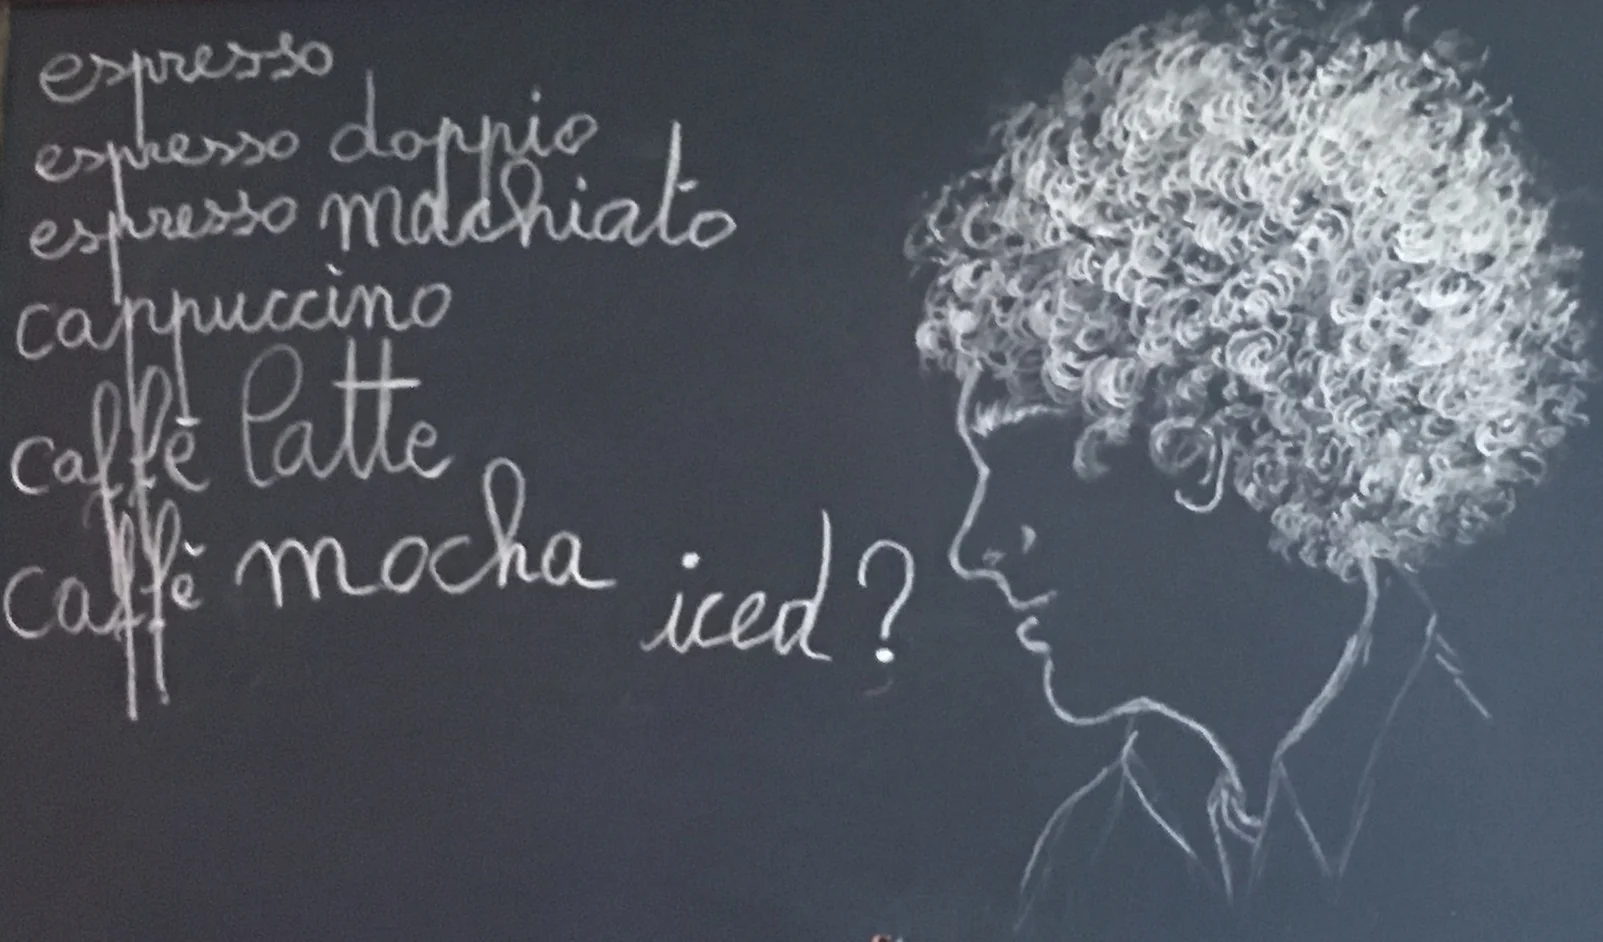 espresso
espresso doppio
espresso macchiato
cappuccino
caffè latte
caffè mocha
iced?